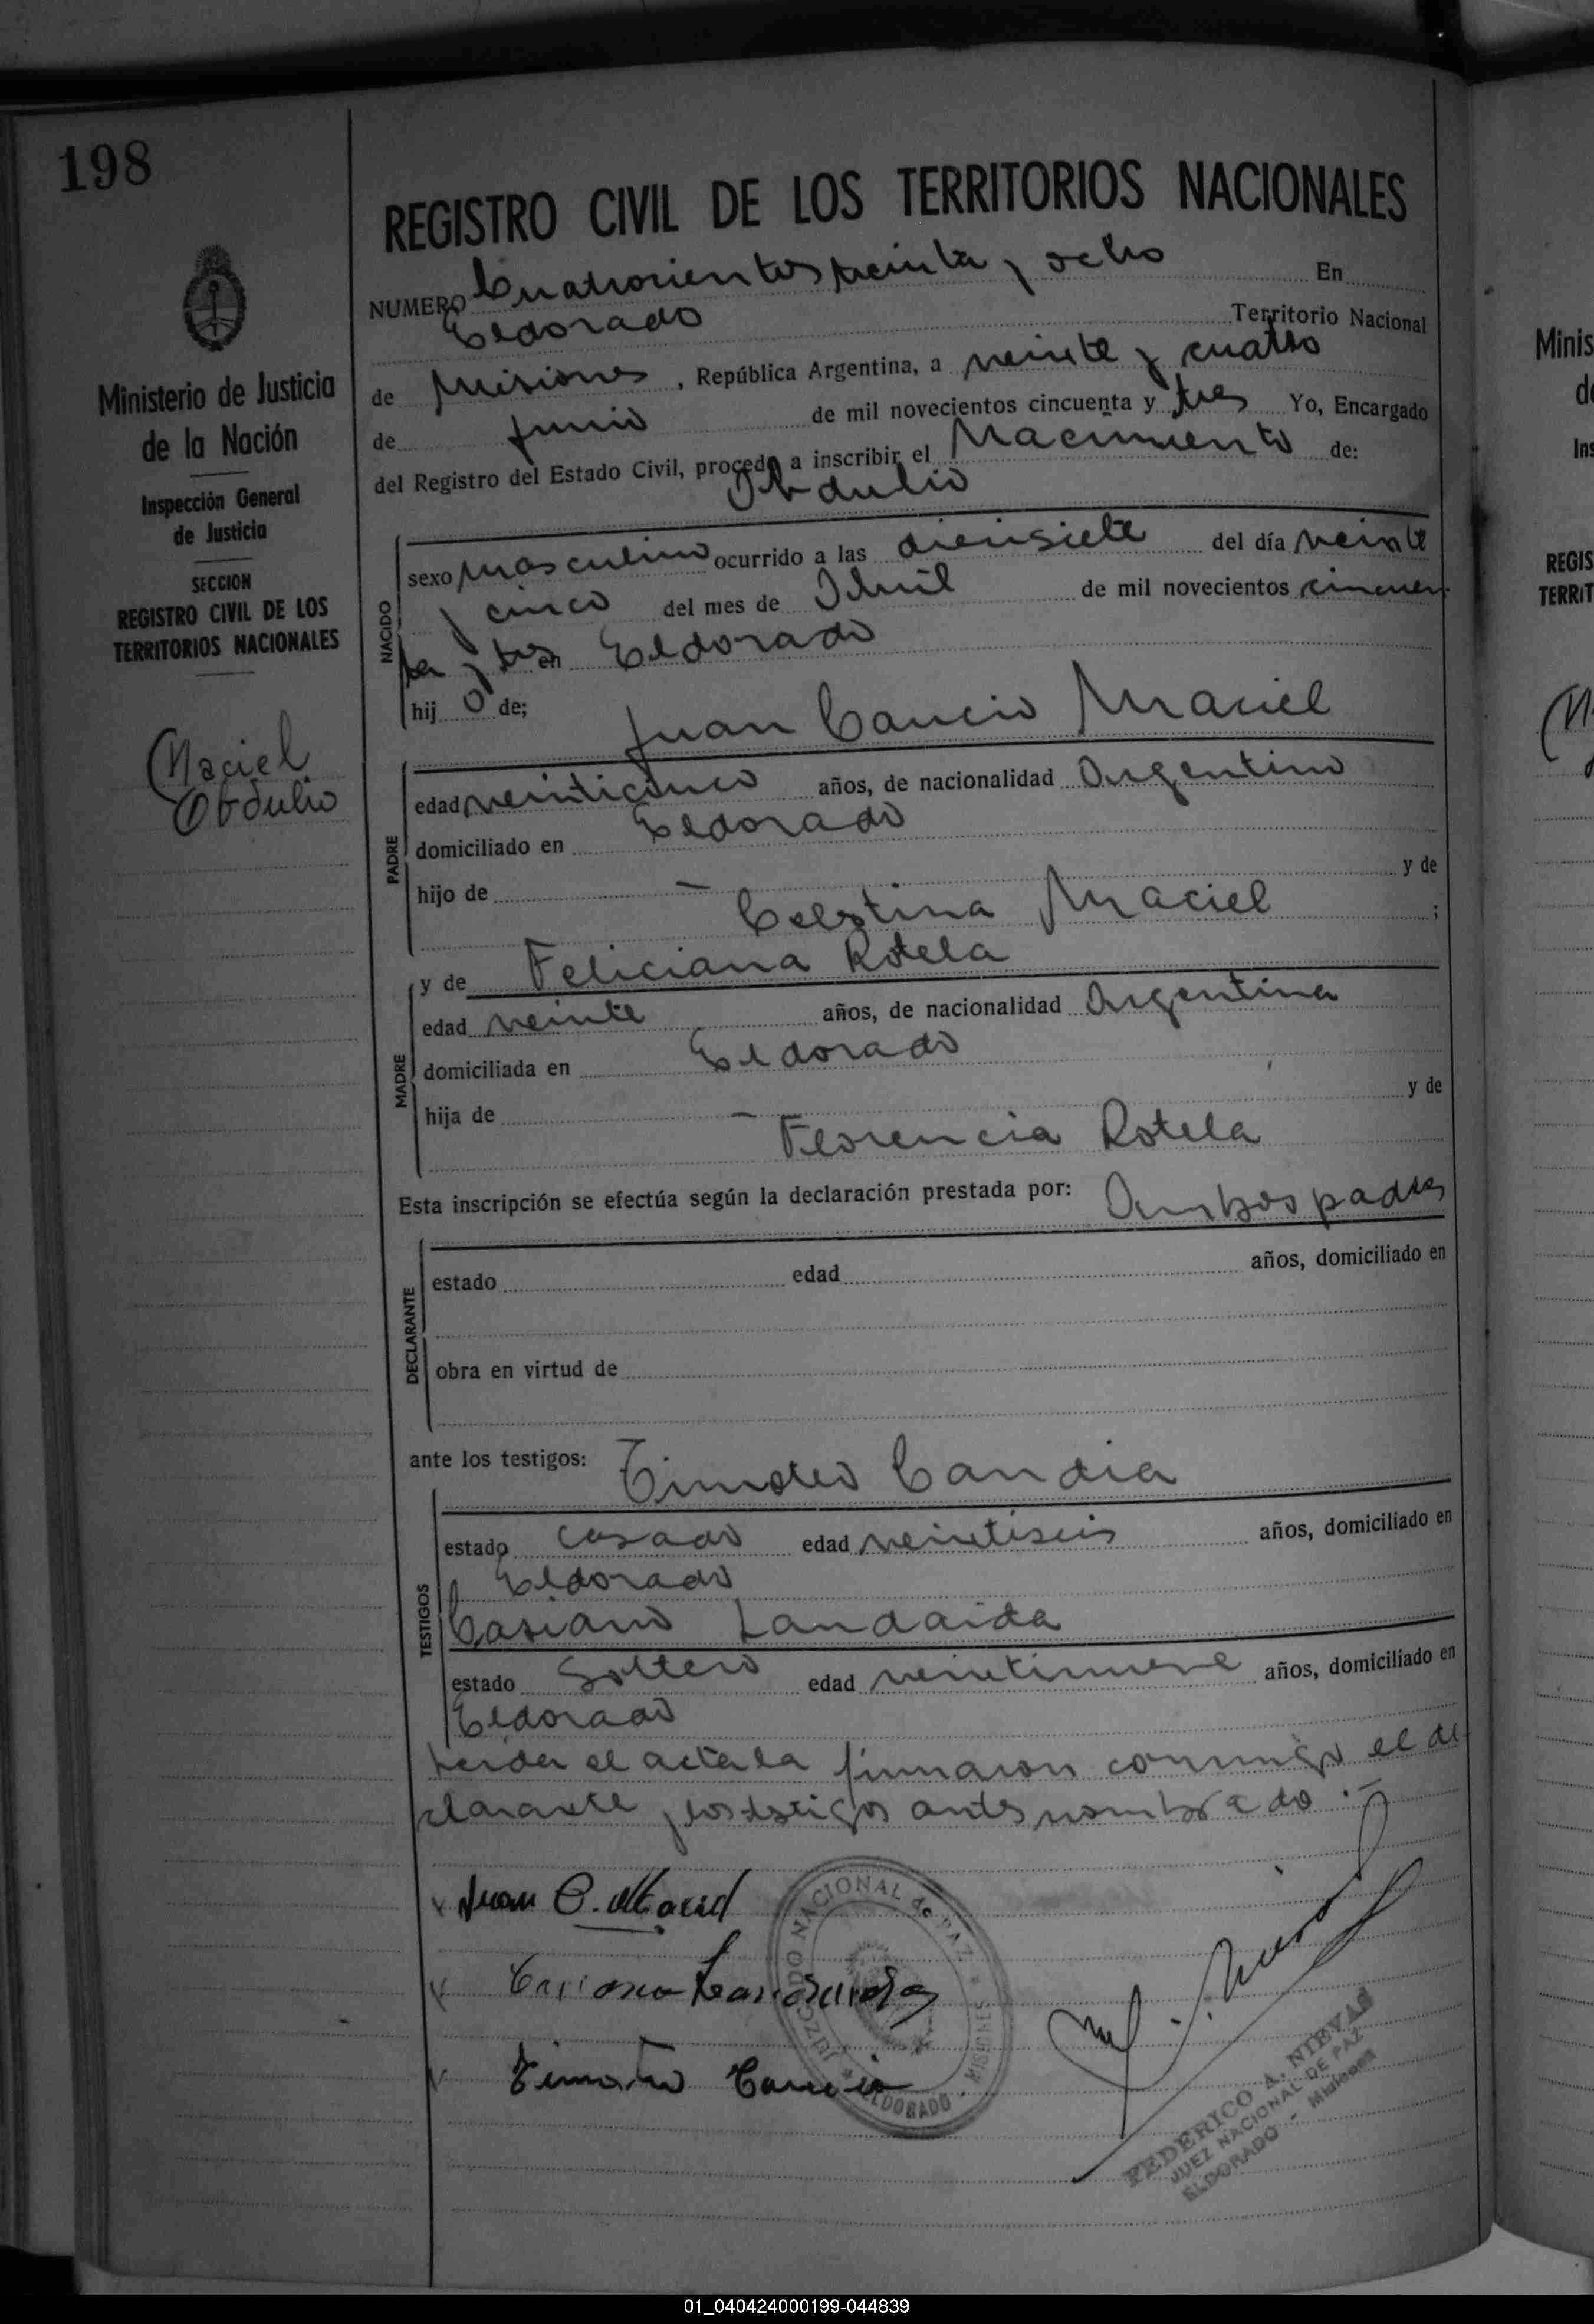 198
REGISTRO CIVIL DE LOS TERRITORIOS NACIONALES
NUMERO Cuatrocientos treinta y ocho En
Eldorado Territorio Nacional
de Misiones, República Argentina, a veinte y cuatro
de junio de mil novecientos cincuenta y tres Yo, Encargado
del Registro del Estado Civil, procedo a inscribir el Nacimiento de:
Obdulio
Ministerio de Justicia
de la Nación
Inspección General
de Justicia
SECCION
REGISTRO CIVIL DE LOS
TERRITORIOS NACIONALES
Maciel
Obdulio
NACIDO
sexo masculino ocurrido a las diecisiete del día veinte
y cinco del mes de Abril de mil novecientos cincuen
ta y tres en Eldorado
hij o de; Juan Cancio Maciel
PADRE
edad veinticinco años, de nacionalidad Argentino
domiciliado en Eldorado
hijo de — y de
Celestina Maciel ;
y de Feliciana Rotela
MADRE
edad veinte años, de nacionalidad Argentina
domiciliada en Eldorado
hija de — y de
Florencia Rotela
Esta inscripción se efectúa según la declaración prestada por: Ambos padres
DECLARANTE
estado edad años, domiciliado en
obra en virtud de
ante los testigos: Timoteo Candia
TESTIGOS
estado casado edad veintiseis años, domiciliado en
Eldorado
Casiano Landaida
estado Soltero edad veintinueve años, domiciliado en
Eldorado
Leida el acta la firmaron conmigo el de
clarante y los testigos antes nombrado .-
Juan C. Maciel
Casiano Landaida
Timoteo Candia
JUZGADO NACIONAL de PAZ
ELDORADO - MISIONES
FEDERICO A. NIEVAS
JUEZ NACIONAL DE PAZ
ELDORADO - Misiones
Minis
de
Ins
REGIS
TERRIT
01_040424000199-044839